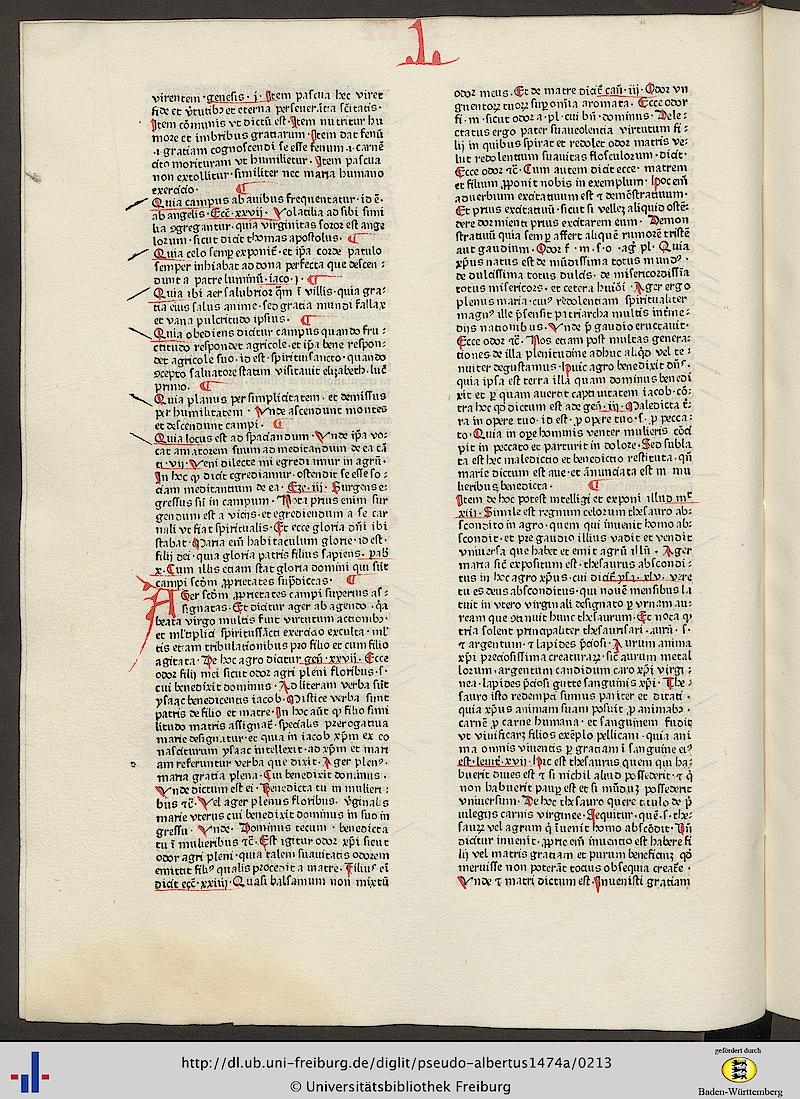 L
virentem · genesis · j · Item pascua hec viret
fide et v̄tutibꝫ et eterna perseuerātia sc̄itatis ·
Item cōmunis vt dictū est · Item nutritur hu
more et imbribus gratiarum · Item dat fenū
·i· gratiam cognoscendi se esse fenum · a carnē
cito morituram vt humilietur · Item pascua
non extollitur · similiter nec maria humano
exercicio ·
Quia campus ab auibus frequentatur · id ē ·
ab angelis · Ecc̄ · xxvij · Volatilia ad sibi simi
lia ꝯgregantur · quia virginitas soror est ange
lorum · sicut dicit thomas apostolus ·
Quia celo semp exponit̄ · et ip̄a corde patulo
semper inhiabat ad dona perfecta que descen ·
dunt a patre luminū · iaco · j ·
Quia ibi aer salubrior q̄m ī villis · quia gra-
tia eius salus anime · sed gratia mundi fallax
et vana pulcritudo ipsius ·
Quia obediens dicitur campus quando fru ·
ctitudo respondet agricole · et ip̄a bene respon-
det agricole suo · id est · spiritui sancto · quando
ꝯcepto saluatore statim visitauit elizabeth · luc̄
primo ·
Quia planus per simplicitatem · et demissus
per humilitatem · Vnde ascendunt montes
et descendunt campi ·
Quia locus est ad spaciandum · Vnde ip̄a vo-
cat amatorem suum ad meditandum de ea cā
ti · vij · Veni dilecte mi egrediamur in agrū ·
In hoc ꝙ dicit egrediamur · ostendit se esse so ·
ciam meditantium de ea · Eze · iij · Surgens e-
gressus sū in campum · Nota prius enim sur
gendum est a viciis · et egrediendum a se car
nali vt fiat spiritualis · Et ecce gloria dn̄i ibi
stabat · Maria em̄ habitaculum glorie · id est ·
filij dei · quia gloria patris filius sapiens · pab
x · Cum illis etiam stat gloria domini qui sūt
campi scd̄m ꝓprietates sup̄dictas ·
Ager scd̄m ꝓprietates campi superius as-
signatas · Et dicitur ager ab agendo · q̄a
beata virgo multis fuit virtutum actionibꝫ
et ml̄tiplici spiritussācti exercicio exculta · ml̄
tis etiam tribulationibus pro filio et cum filio
agitata · De hoc agro dicitur gen̄ · xxvij · Ecce
odor filij mei sicut odor agri pleni floribus · s ·
cui benedixit dominus · Ad literam verba sūt
ysaac benedicentis iacob · Mistice verba sunt
patris de filio et matre · In hoc aūt ꝙ filio simi
litudo matris assignat̄ · specialis prerogatiua
marie designatur · et quia in iacob xp̄m ex eo
nasciturum ysaac intellexit · ad xp̄m et mari
am referuntur verba que dixit · Ager plenꝰ ·
maria gratia plena · Cui benedixit dominus ·
Vnde dictum est ei · Benedicta tu in mulieri ·
bus ⁊c̄ · Vel ager plenus floribus · v̄ginalis
marie vterus cui benedixit dominus in suo in
gressu · Vnde · Dominus tecum · benedicta
tu ī mulieribus ⁊c̄ · Est igitur odor xp̄i sicut
odor agri pleni · quia talem suauitatis odorem
emittit filiꝰ qualis procedit a matre · Filius em̄
dicit ecc̄ · xxiiij · Quasi balsamum non mixtū
odor meus · Et de matre dicit̄ can̄ · iiij · Odor vn
guentoꝝ tuoꝝ sup om̄ia aromata · Ecce odor
fi · m · sicut odor a · pl · cui bn̄ · dominus · Dele ·
ctatus ergo pater suaueolentia virtutum fi ·
lij in quibus spirat et redolet odor matris ve ·
lut redolentium suauitas flosculorum · dicit ·
Ecce odor ⁊c̄ · Cum autem dicit ecce · matrem
et filium ꝓponit nobis in exemplum · hoc em̄
aduerbium excitatiuum est ⁊ demōstratiuum ·
Et prius excitatiuū · sicut si velleꝫ aliquid ostē ·
dere dormienti prius excitarem eum · Demon
stratiuū quia semꝑ affert aliquē rumorē tristē
aut gaudium · Odor f · m · s · o · aḡ pl · Quia
xp̄us natus est de mūdissima totus mundꝰ ·
de dulcissima totus dulcis · de misericordissīa
totus misericors · et cetera huiꝰōi · Ager ergo
plenus maria · cuiꝰ redolentiam spiritualiter
magnꝰ ille p̄sensit patriarcha multis intīne-
dijs nationibus · Vnde p̄ gaudio eructauit ·
Ecce odor ⁊c̄ · Nos etiam post multas genera ·
tiones de illa plenitudine adhuc aliq̄d vel te ·
nuiter degustamus · Huic agro benedixit dn̄s ·
quia ipsa est terra illa quam dominus benedi
xit et ꝑ quam auertit captiuitatem iacob · cō ·
tra hoc qd̄ dictum est ade gen̄ · iij · Maledicta t̄r
ra in opere tuo · id est · ꝓ opere tuo · s · ꝓ pecca ·
to · Quia in oꝑe hominis venter mulieris cōci
pit in peccato et parturit in dolore · Sed subla
ta est hec maledictio et benedictio restituta · qn̄
marie dictum est aue · et ānunciata est in mu
lieribus benedicta ·
Item de hoc potest intelligi et exponi illud mt̄
xiij · Simile est regnum celorum thesauro ab ·
scondito in agro · quem qui inuenit homo ab ·
scondit · et pre gaudio illius vadit et vendit
vniuersa que habet et emit agrū illū · Ager
maria sic̄ expositum est · thesaurus abscondi ·
tus in hoc agro xp̄us · cui dicit̄ ysa · xlv · vere
tu es deus absconditus · qui nouē mensibus la
tuit in vtero virginali designato ꝑ vrnam au-
ream que ꝯtinuit hunc thesaurum · Et nota ꝙ
tria solent principaliter thesaurisari · aurū · s ·
⁊ argentum · ⁊ lapides p̄ciosi · Aurum anima
xp̄i preciosissima creaturaꝝ · sic̄ aurum metal
lorum · argentum candidum caro xp̄i virgi ·
nea · lapides p̄ciosi gutte sanguinis xp̄i · The ·
sauro isto redempti sumus pariter et ditati ·
quia xp̄us animam suam posuit ꝓ animabꝫ ·
carnē ꝓ carne humana · et sanguinem fudit
vt viuificaꝫ filios exēplo pellicani · quia ani
ma omnis viuentis ꝑ gratiam ī sanguine eiꝰ
est · leuit̄ · xvij · Hic est thesaurus quem qui ha ·
buerit diues est ⁊ si nichil aliud possederit · ⁊ q̄
non habuerit pauꝑ est et si mūduꝫ possederit
vniuersum · De hoc thesauro quere titulo de p̄
uilegijs carnis virginee · Sequitur · quē · s · the ·
sauꝝ vel agrum q̄ īuenit homo abscōdit · Dn̄
dicitur inuenit · ꝓprie em̄ inuentio est habere fi
lij vel matris gratiam et purum beneficiuꝫ qd̄
meruisse non poterāt totius obsequia creatē ·
Vnde ⁊ matri dictum est · Inuenisti gratiam
http://dl.ub.uni-freiburg.de/diglit/pseudo-albertus1474a/0213
© Universitätsbibliothek Freiburg
gefördert durch
Baden-Württemberg